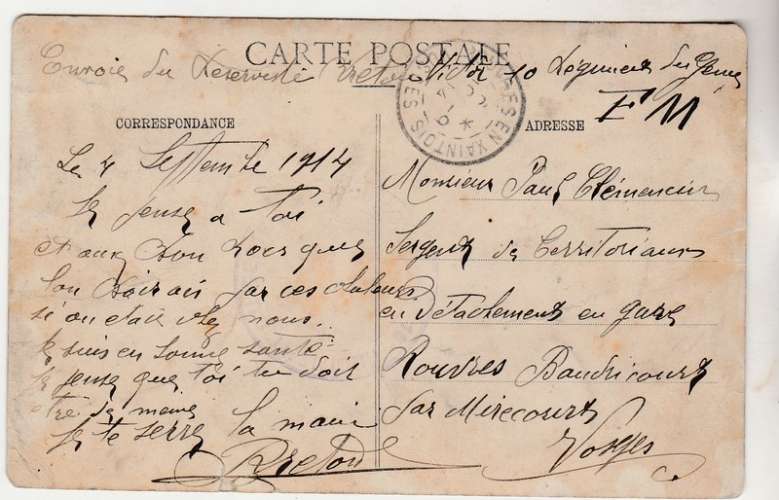 CARTE POSTALE
Envoie du Réserviste Victor 10 Régiment du Génie
F M
CORRESPONDANCE
ADRESSE
EN XAINTOIS
Le 4 Septembre 1914
Je pense a toi
et aux bon bocs que
l'on boirais par ces chaleurs
si on était chez nous..
Je suis en bonne santé
Je pense que toi tu doit
être de même
Je te serre la main
Monsieur Paul Clémencin
Sergent de territoriaux
en détachement en gare
Rouvres Baudricourt
par Mirecourt
Vosges